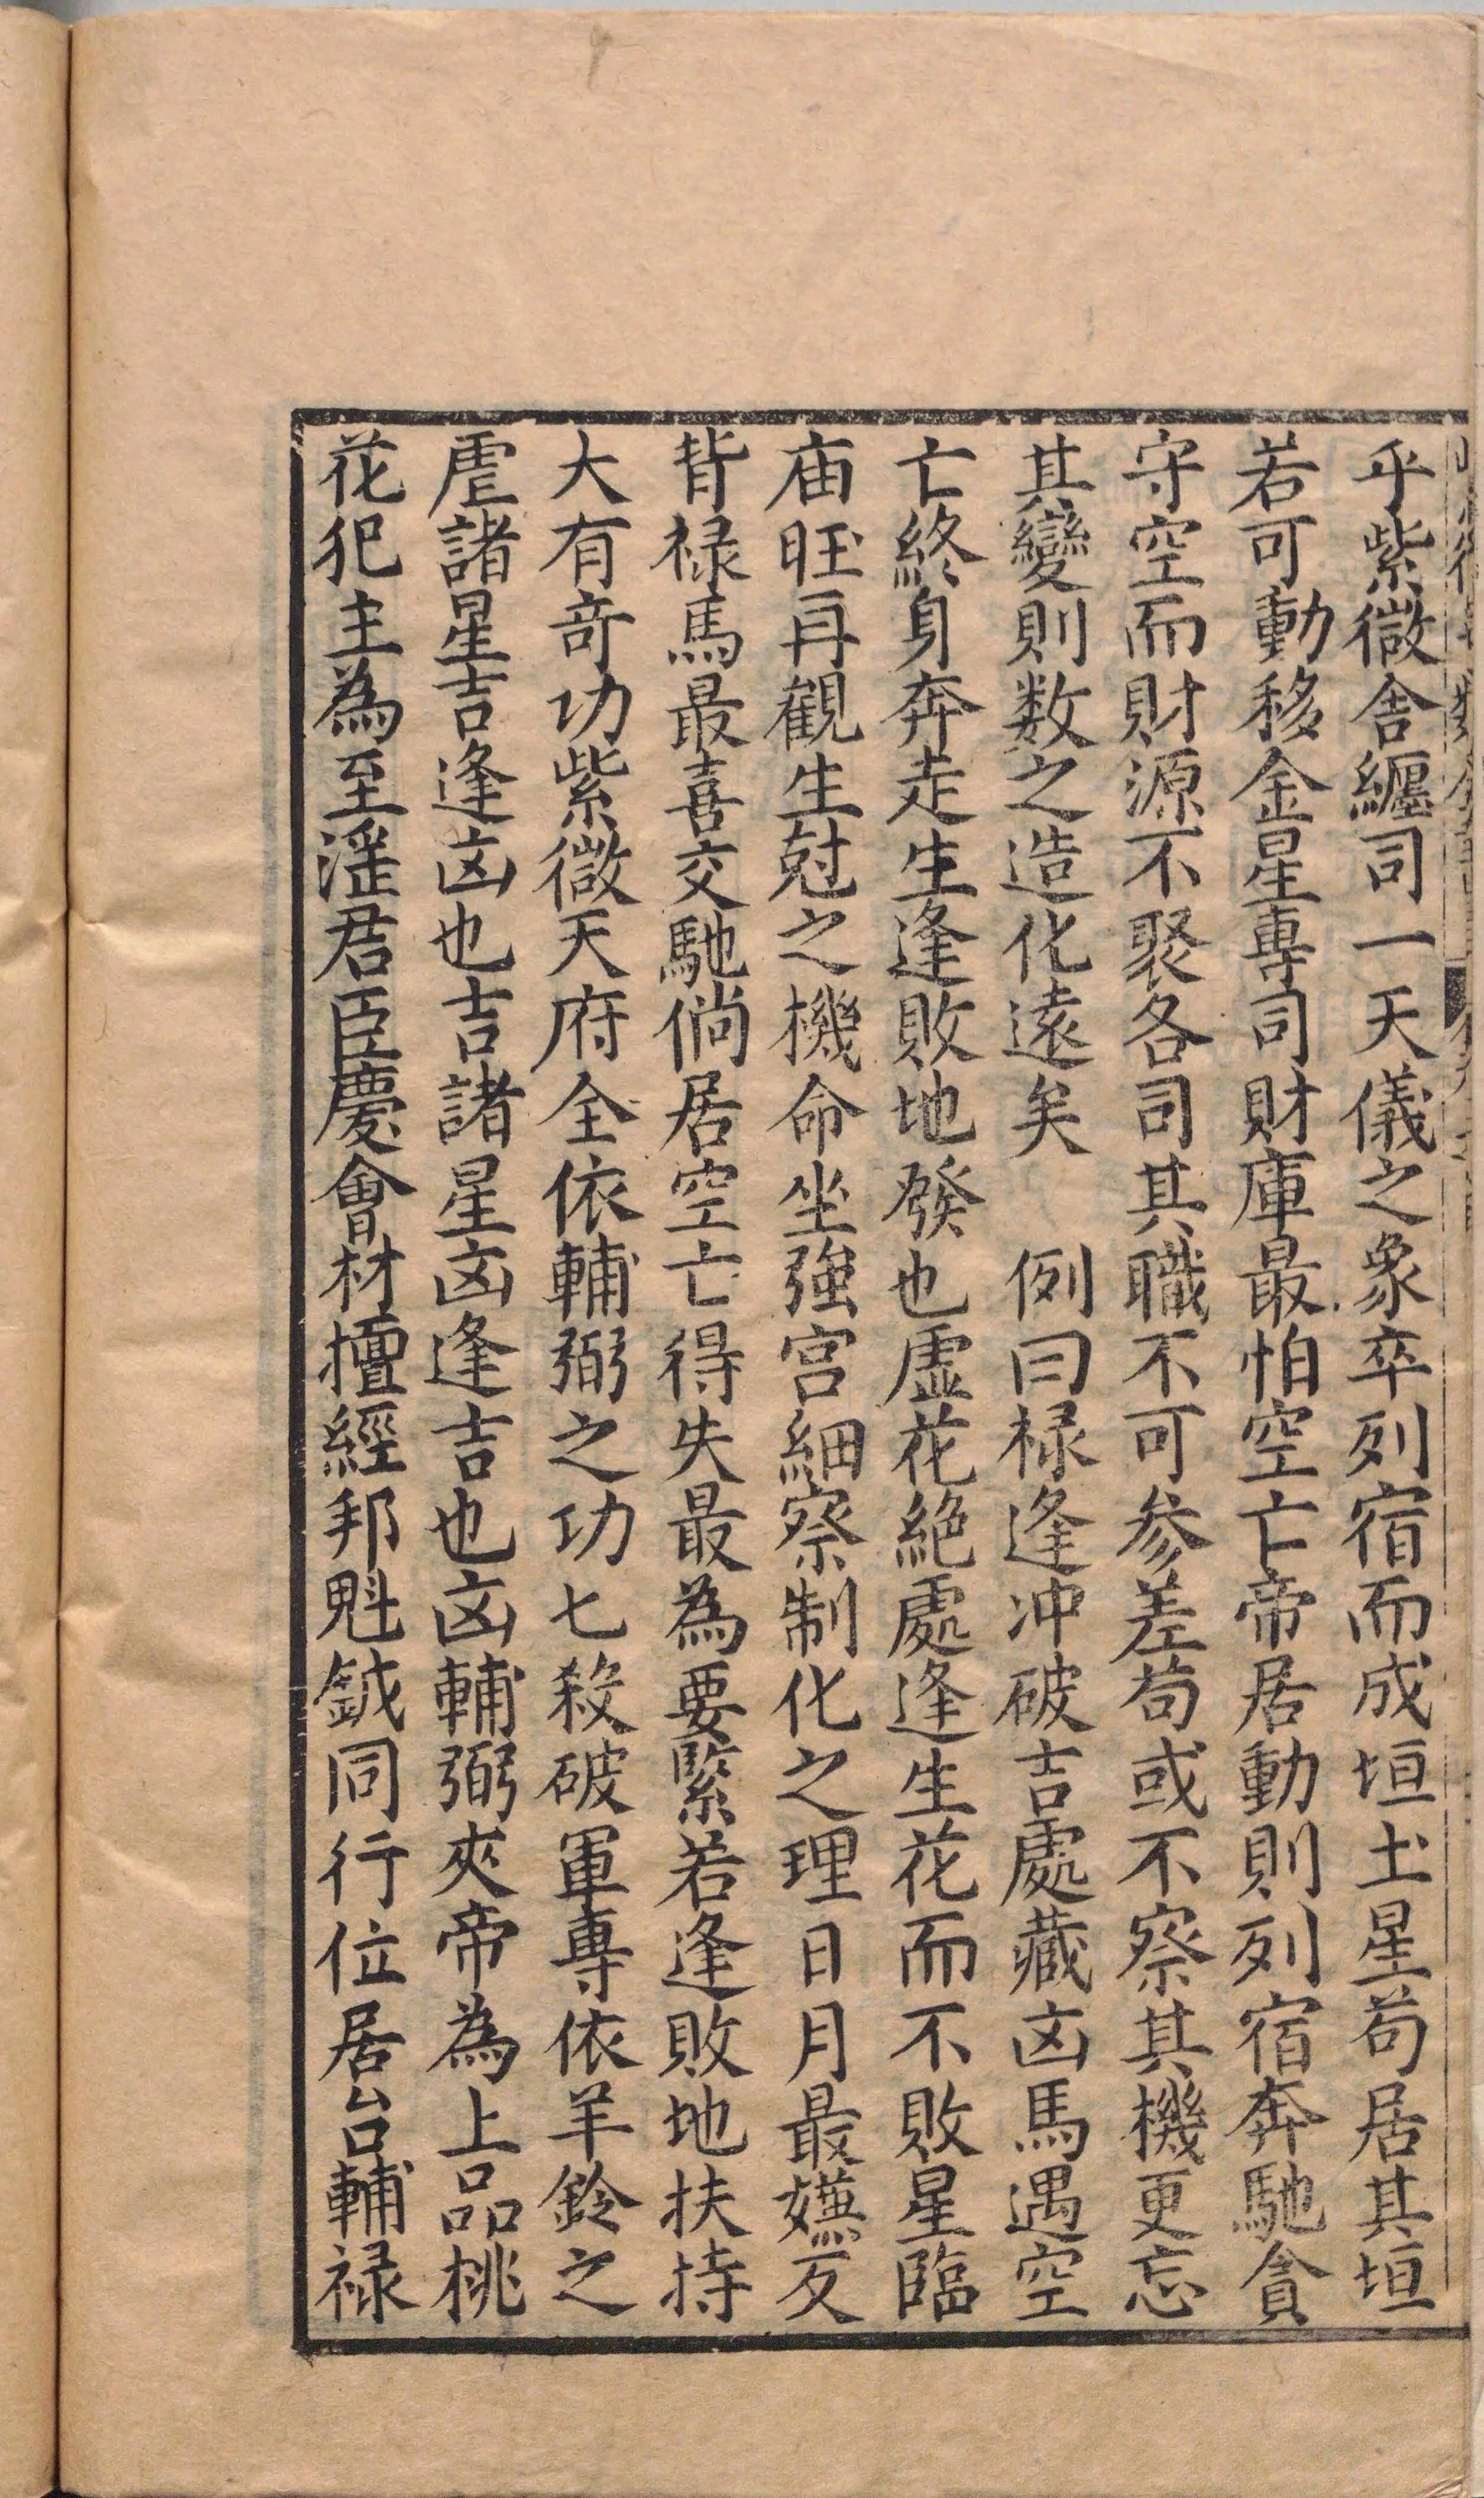 乎紫微舍纏司一天儀之象卒列宿而成垣土星苟居其垣
若可動移金星專司財庫最怕空亡帝居動則列宿奔馳貪
守空而財源不聚各司其職不可参差苟或不察其機更忘
其變則数之造化遠矣　例曰禄逢冲破吉處藏凶馬遇空
亡終身奔走生逢敗地發也虚花絶處逢生花而不敗星臨
庙旺再観生尅之機命坐強宫細察制化之理日月最嫌反
背禄馬最喜交馳倘居空亡得失最為要緊若逢敗地扶持
大有奇功紫微天府全依輔弼之功七殺破軍專依羊鈴之
虐諸星吉逢凶也吉諸星凶逢吉也凶輔弼夾帝為上品桃
花犯主為至淫君臣慶會材擅經邦魁鉞同行位居台輔禄